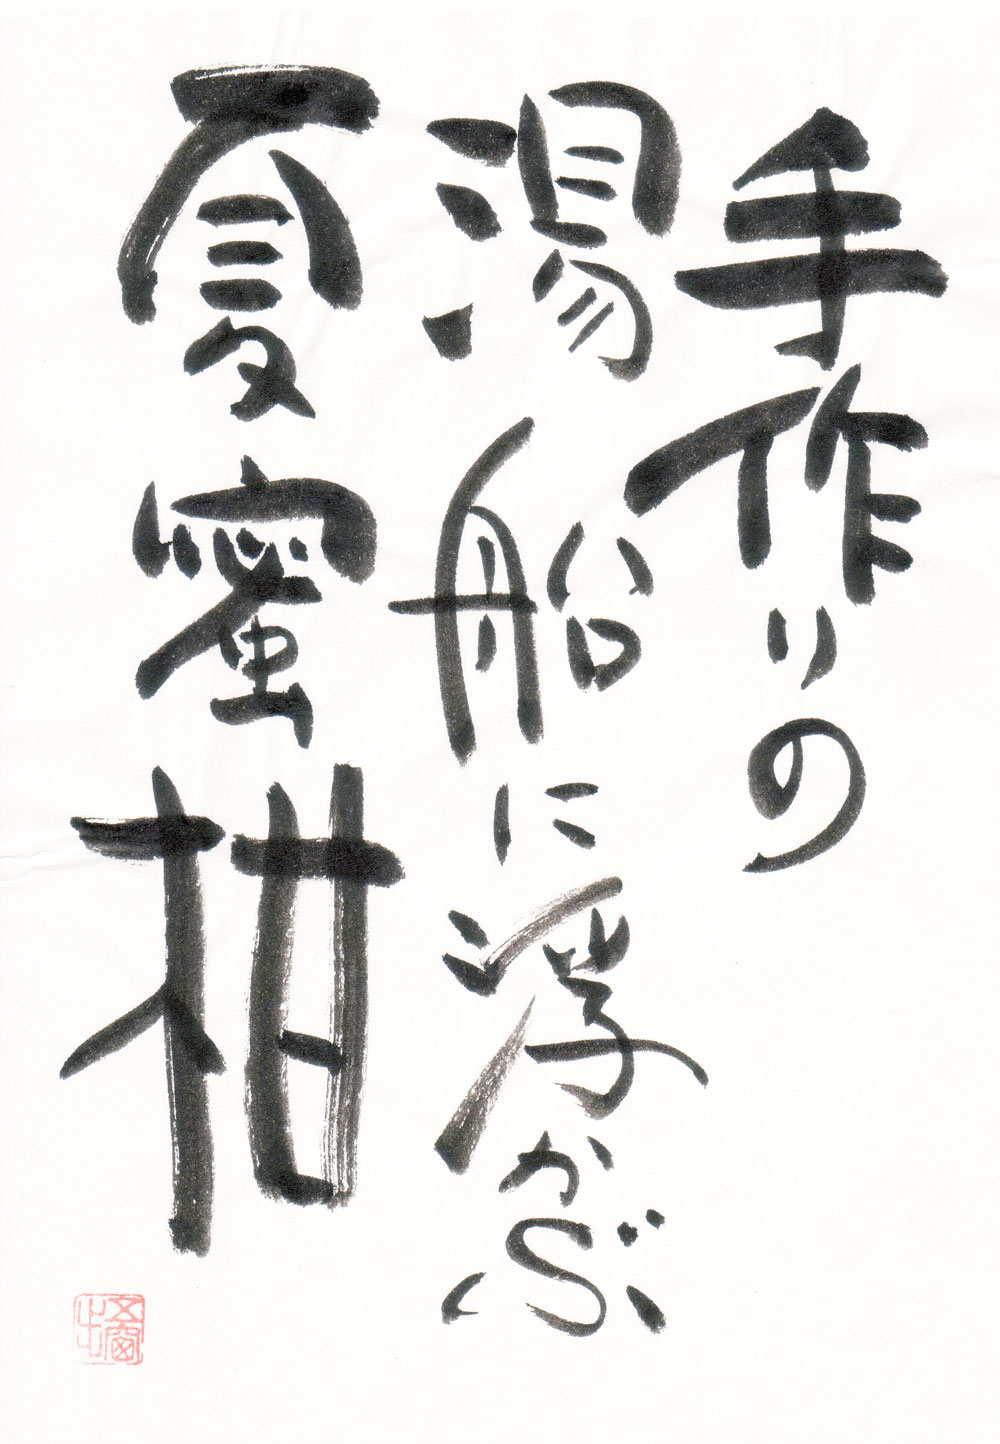 手作りの
湯船に浮かぶ
夏蜜柑